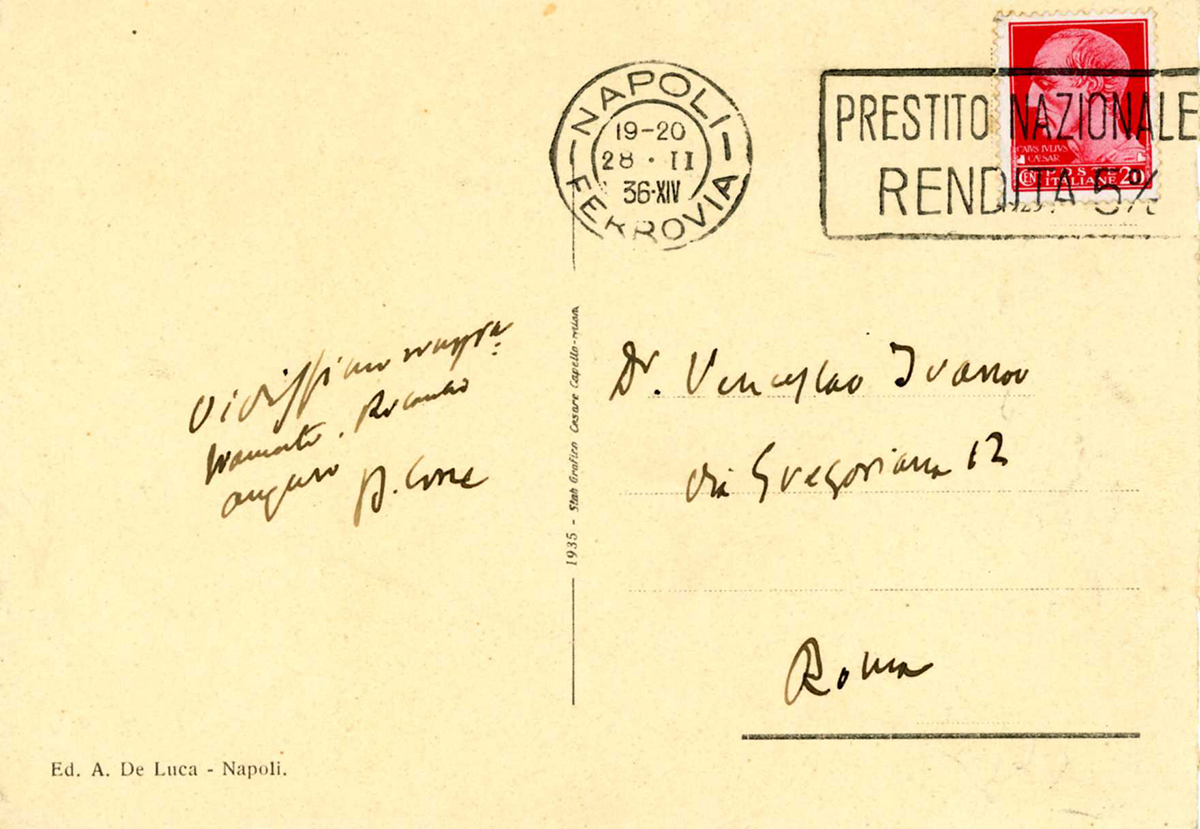 NAPOLI
19-20
28 · II
36·XIV
FERROVIA
PRESTITO NAZIONALE
RENDITA 5%
CAIVS IVLIVS
CAESAR
CEN POSTE 20
ITALIANE
vivissimi ringra-
ziamenti. Ricambio
auguri B. Croce
1935 - Stab Grafico Cesare Capello-Milan
Dr. Venceslao Ivanov
via Gregoriana 12
Roma
Ed. A. De Luca - Napoli.